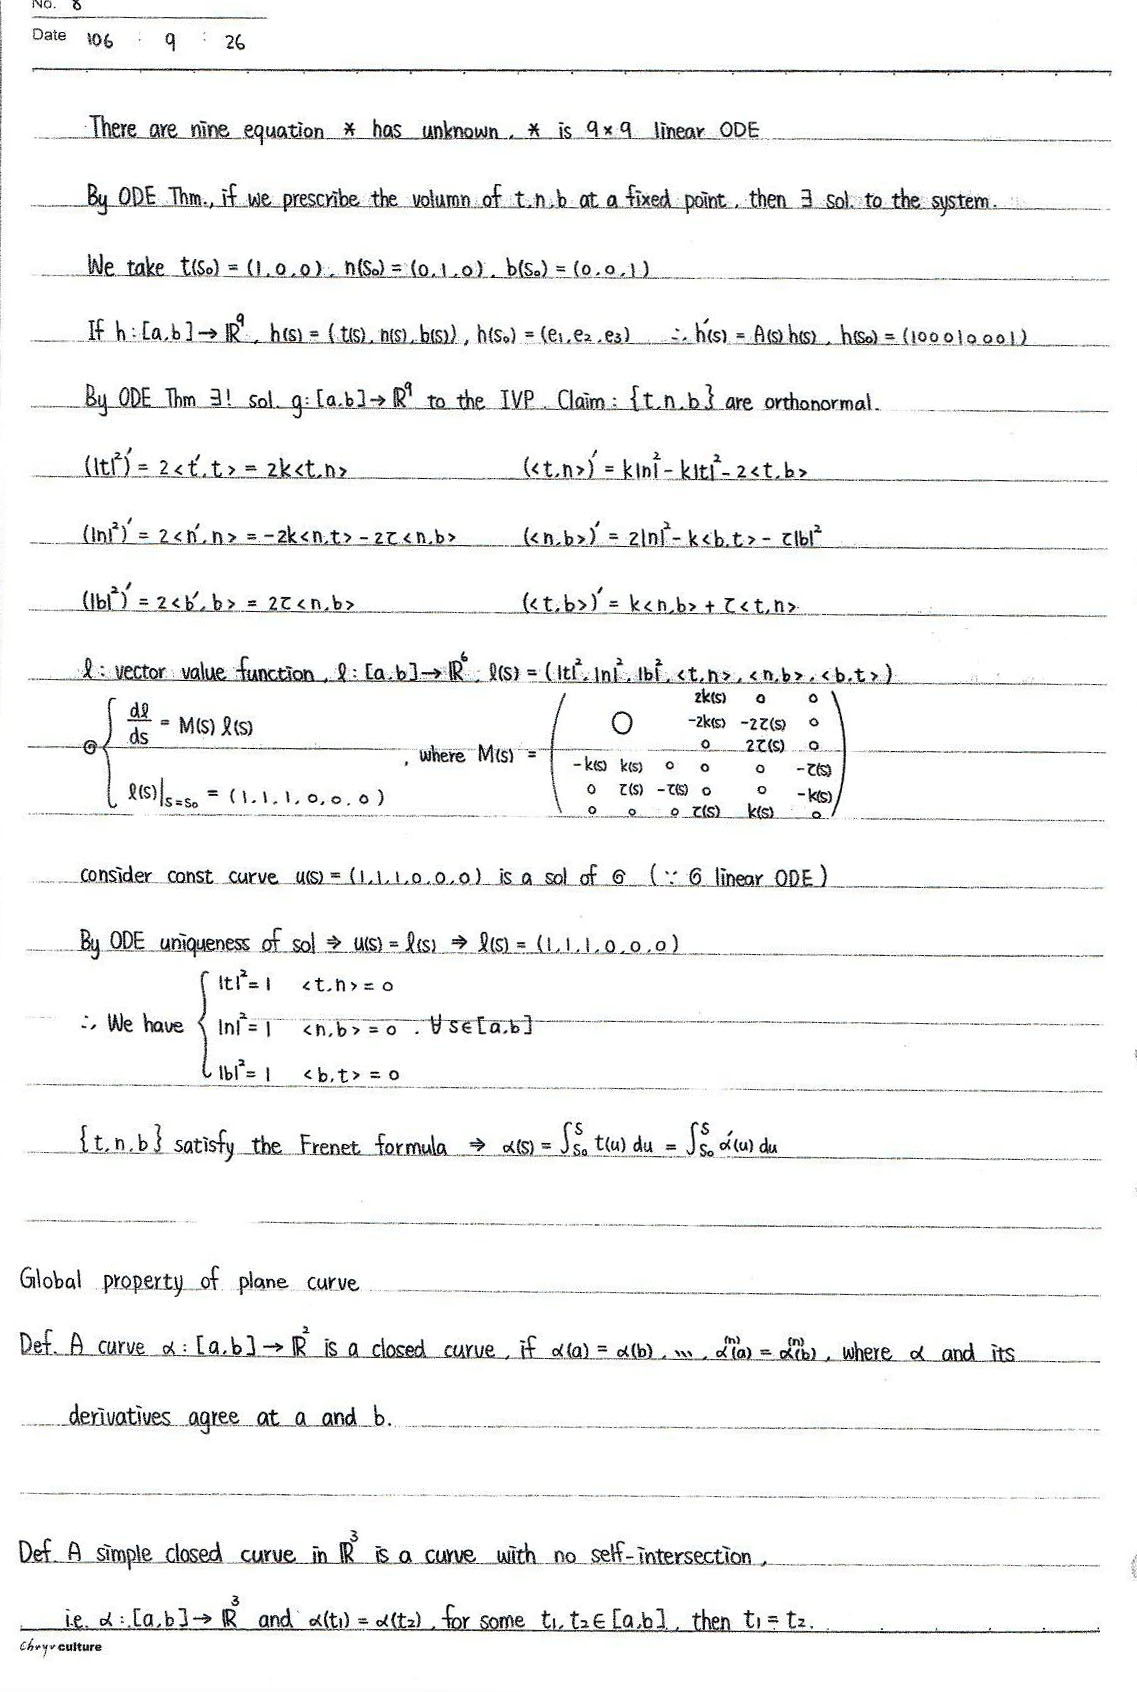 No. 8
Date 106 : 9 : 26
There are nine equation * has unknown, * is 9×9 linear ODE
By ODE Thm., if we prescribe the volumn of t,n,b at a fixed point, then ∃ sol. to the system.
We take t(s₀) = (1,0,0), n(s₀) = (0,1,0), b(s₀) = (0,0,1)
If h:[a,b]→ℝ⁹, h(s) = (t(s), n(s), b(s)), h(s₀) = (e₁,e₂,e₃) ∴ h'(s) = A(s)h(s), h(s₀) = (100010001)
By ODE Thm ∃! sol. g:[a,b]→ℝ⁹ to the IVP. Claim: {t,n,b} are orthonormal.
(|t|²)' = 2<t',t> = 2k<t,n> (<t,n>)' = k|n|² - k|t|² - 2<t,b>
(|n|²)' = 2<n',n> = -2k<n,t> - 2τ<n,b> (<n,b>)' = 2|n|² - k<b,t> - τ|b|²
(|b|²)' = 2<b',b> = 2τ<n,b> (<t,b>)' = k<n,b> + τ<t,n>
ℓ: vector value function, ℓ:[a,b]→ℝ⁶, ℓ(s) = (|t|², |n|², |b|², <t,n>, <n,b>, <b,t>)
2k(s) 0 0
dℓ/ds = M(s) ℓ(s) 0 -2k(s) -2τ(s) 0
⑥ , where M(s) = 0 2τ(s) 0
-k(s) k(s) 0 0 0 -τ(s)
ℓ(s)|s=s₀ = (1,1,1,0,0,0) 0 τ(s) -τ(s) 0 0 -k(s)
0 0 0 τ(s) k(s) 0
consider const curve u(s) = (1,1,1,0,0,0) is a sol of 6 (∵ 6 linear ODE)
By ODE uniqueness of sol ⇒ u(s) = ℓ(s) ⇒ ℓ(s) = (1,1,1,0,0,0)
|t|² = 1 <t,n> = 0
∴ We have |n|² = 1 <n,b> = 0 . ∀ s∈[a,b]
|b|² = 1 <b,t> = 0
{t,n,b} satisfy the Frenet formula ⇒ α(s) = ∫ₛ₀ˢ t(u) du = ∫ₛ₀ˢ α'(u) du
Global property of plane curve
Def. A curve α:[a,b]→ℝ² is a closed curve, if α(a) = α(b), ..., α⁽ⁿ⁾(a) = α⁽ⁿ⁾(b), where α and its
derivatives agree at a and b.
Def. A simple closed curve in ℝ³ is a curve with no self-intersection,
i.e. α:[a,b]→ℝ³ and α(t₁) = α(t₂), for some t₁,t₂∈[a,b], then t₁ = t₂.
Chryv culture